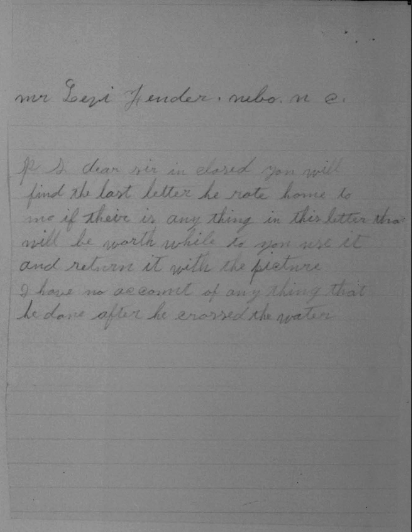 mr Levi Fender. nebo. n c.
P S dear sir in closed you will
find the last letter he rote home to
me if their is any thing in this letter tha
will be worth while to you use it
and return it with the picture
I have no account of any thing that
he done after he crossed the water